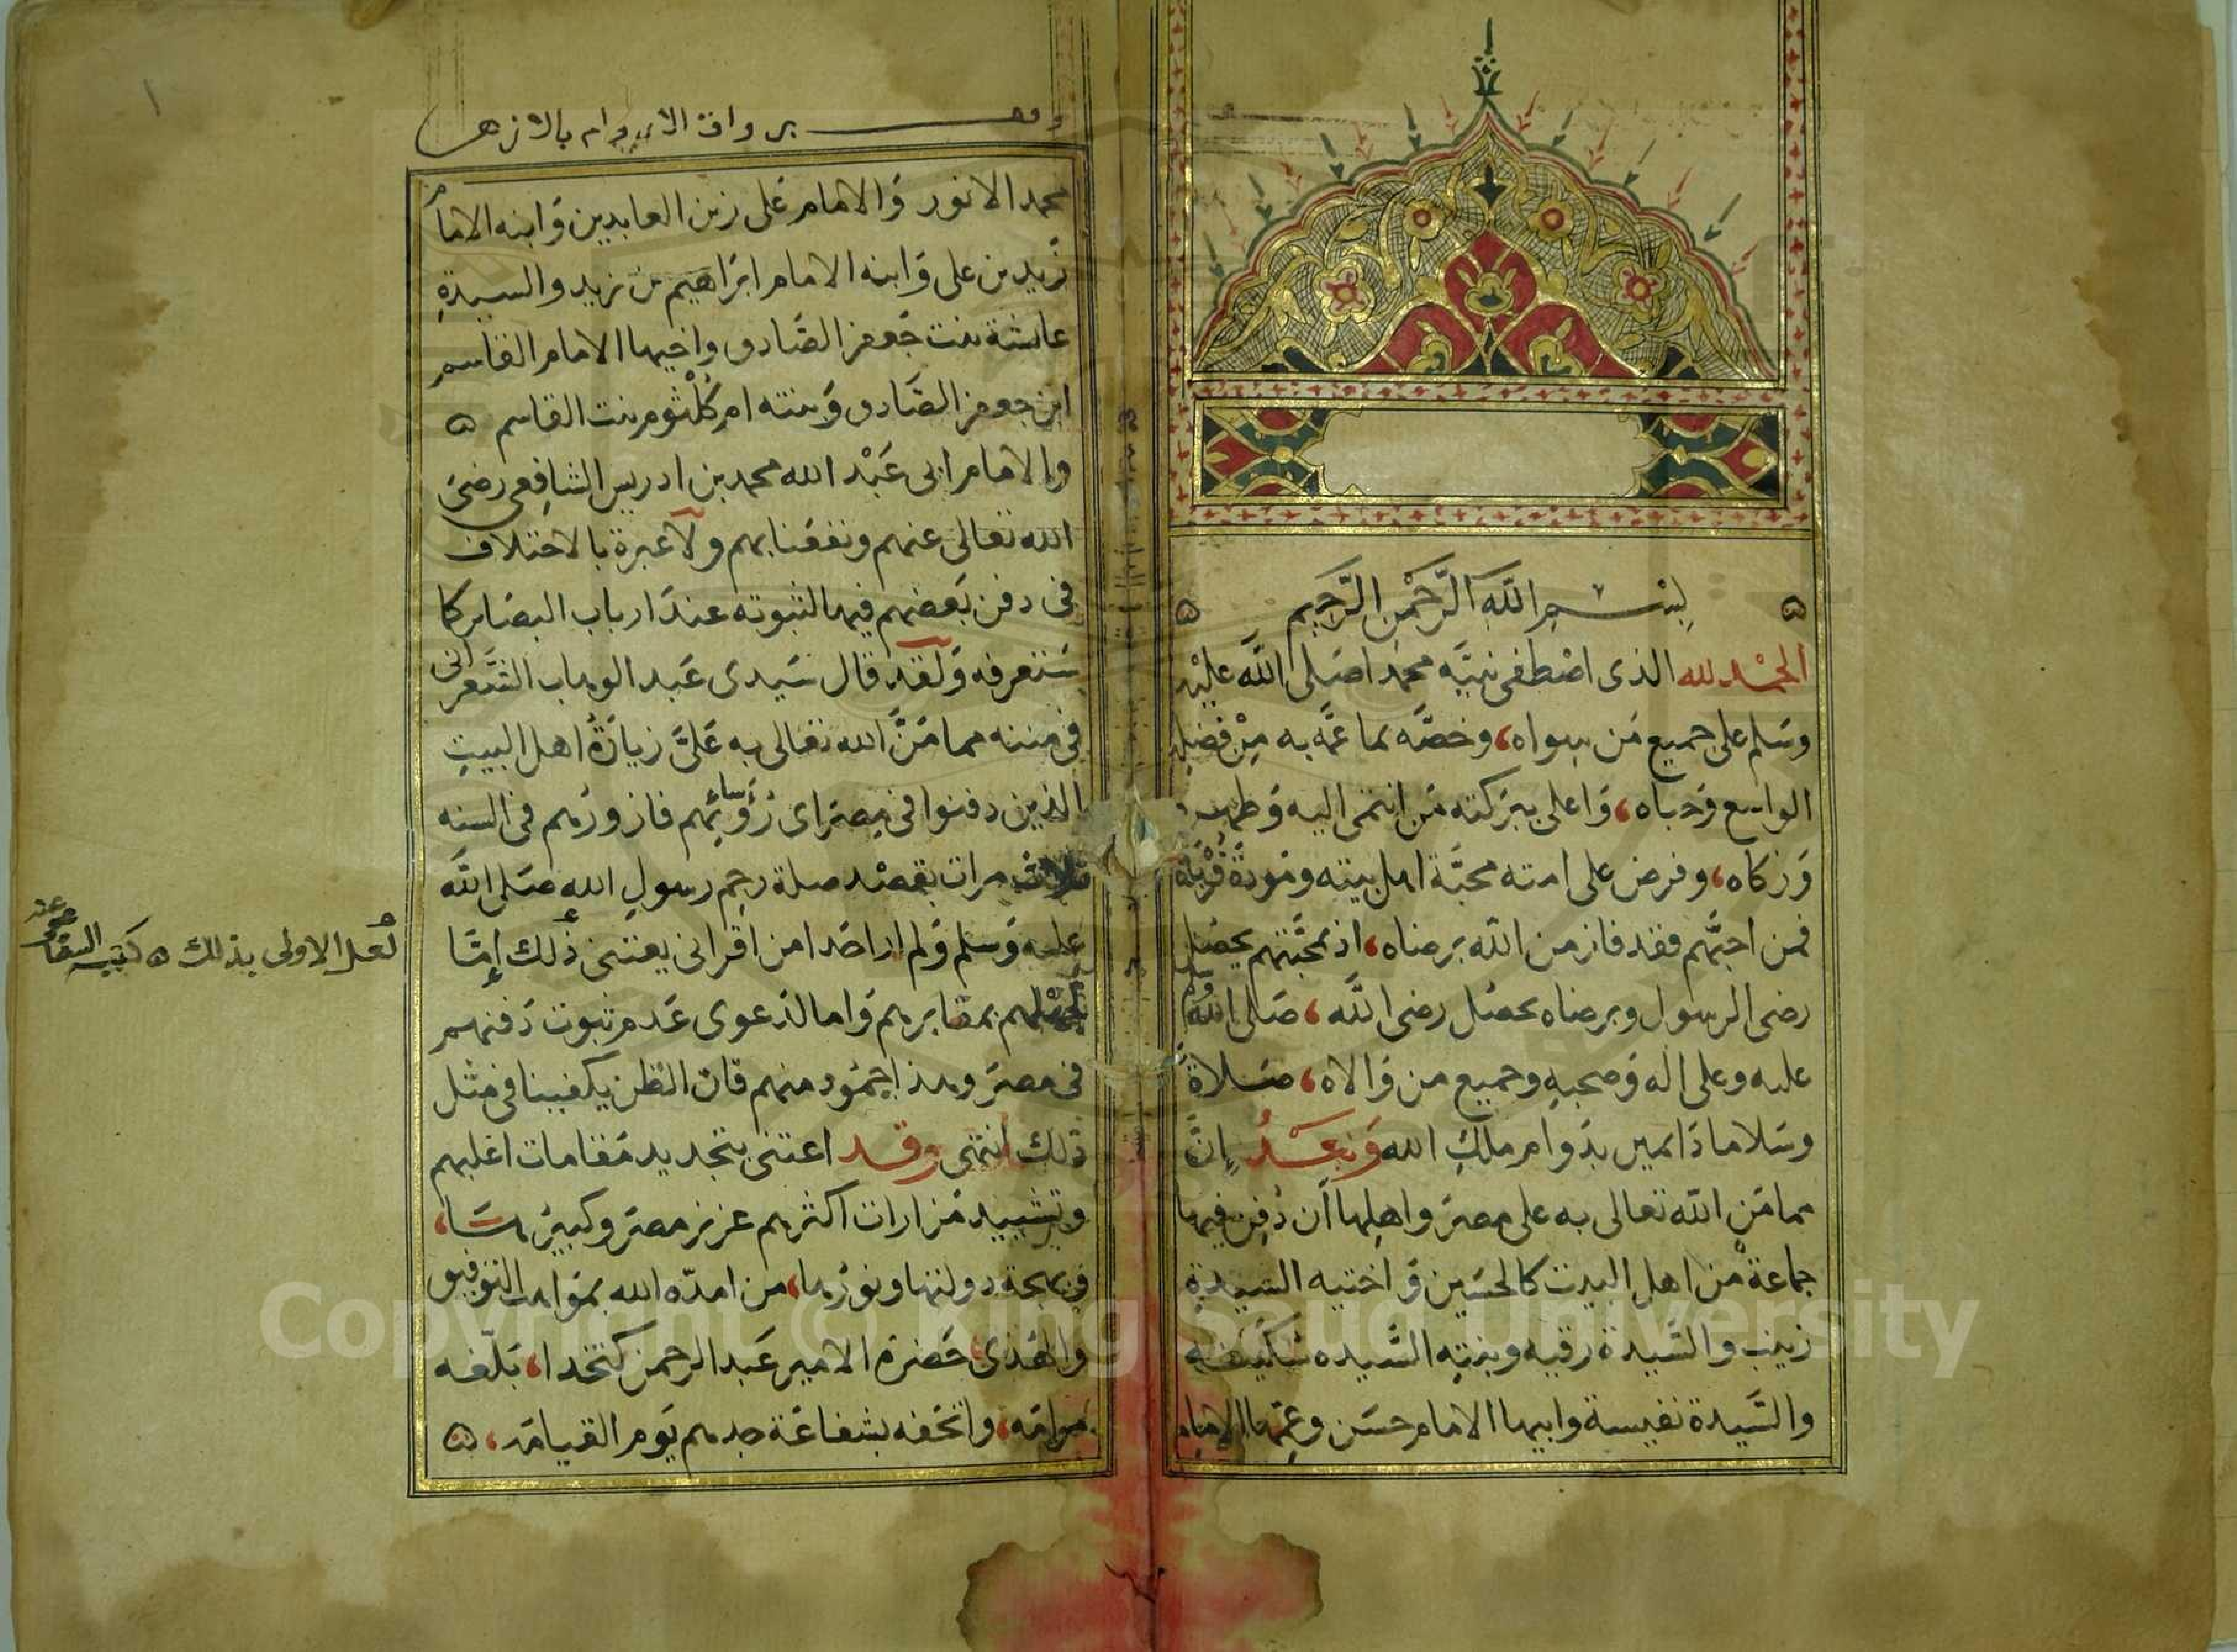 بسم الله الرحمن الرحيم
الحمد لله الذى اصطفى نبيّه محمدا صلى الله عليه
وسلم على جميع من سواه، وخصّه بما عمّه به من فضله
الواسع وحباه، واعلى ببركته من انتمى اليه وطهره
وزكاه، وفرض على امته محبّة اهل بيته ومودة قرباه
فمن احبّهم فقد فاز من الله برضاه، اذ بمحبّتهم يحصل
رضى الرسول وبرضاه يحصل رضى الله، صلى الله وسلم
عليه وعلى اله وصحبه وجميع من والاه، صلاة
وسلاما دايمين بدوام ملك الله وبعد إنّ
مما من الله تعالى به على مصر واهلها أن دفن فيها
جماعة من اهل البيت كالحسين واختيه السيدة
زينب والسيدة رقيه وبنته السيده سكينه
والسّيدة نفيسة وابيها الامام حسن وعمّها الامام
وقف برواق الاروام بالازهر
محمد الانور والامام على زين العابدين وابنه الامام
زيد بن على وابنه الامام ابراهيم بن زيد والسيدة
عايشة بنت جعفر الصّادق واخيها الامام القاسم
ابن جعفر الصّادق وبنته ام كلثوم بنت القاسم
والامام ابى عبْد الله محمد بن ادريس الشافعى رضى
الله تعالى عنهم ونفعنا بهم ولا عبرة بالاختلاف
فى دفن بعضهم فيها لثبوته عند ارباب البصاير كما
ستعرفه ولقد قال سيدى عبد الوهاب الشعرانى
فى مننه مما منّ الله تعالى به علىّ زيارة اهل البيت
الذين دفنوا فى مصر اى رؤسائهم فازورهم فى السنه
ثلاث مرات بقصد صلة رحم رسول الله صلى الله
عليه وسلم ولم ار احدا من اقرانى يعتنى ذلك إمّا
لجهلهم بمقابرهم واما لدعوى عدم ثبوت دفنهم
فى مصر وهذا جمود منهم فان الظن يكفينا فى مثل
ذلك انتهى وقد اعتنى بتجديد مقامات اغلبهم
وتشييد مزارات اكثرهم عزيز مصر وكبيرها،
وبهجة دولتها ونورها، من امدّه الله بمواهب التوفيق
والهدى، حضرة الامير عبد الرحمن كتخدا، بلّغه
مرامه، واتحفه بشفاعة جدهم يوم القيامه،
لعل الاولى بذلك كتبه السقا عفى عنه
Copyright © King Saud University